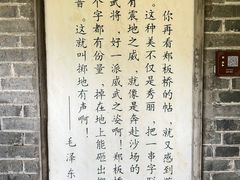 你再看郑板桥的帖,就又感到苍
。这种美不仅是秀丽,把一串字形
有震地之威,就像是奔赴沙场的
武将,好一派威武之姿啊!郑板桥
个字都有份量,掉在地上能砸出
音。这就叫掷地有声啊!
毛泽东